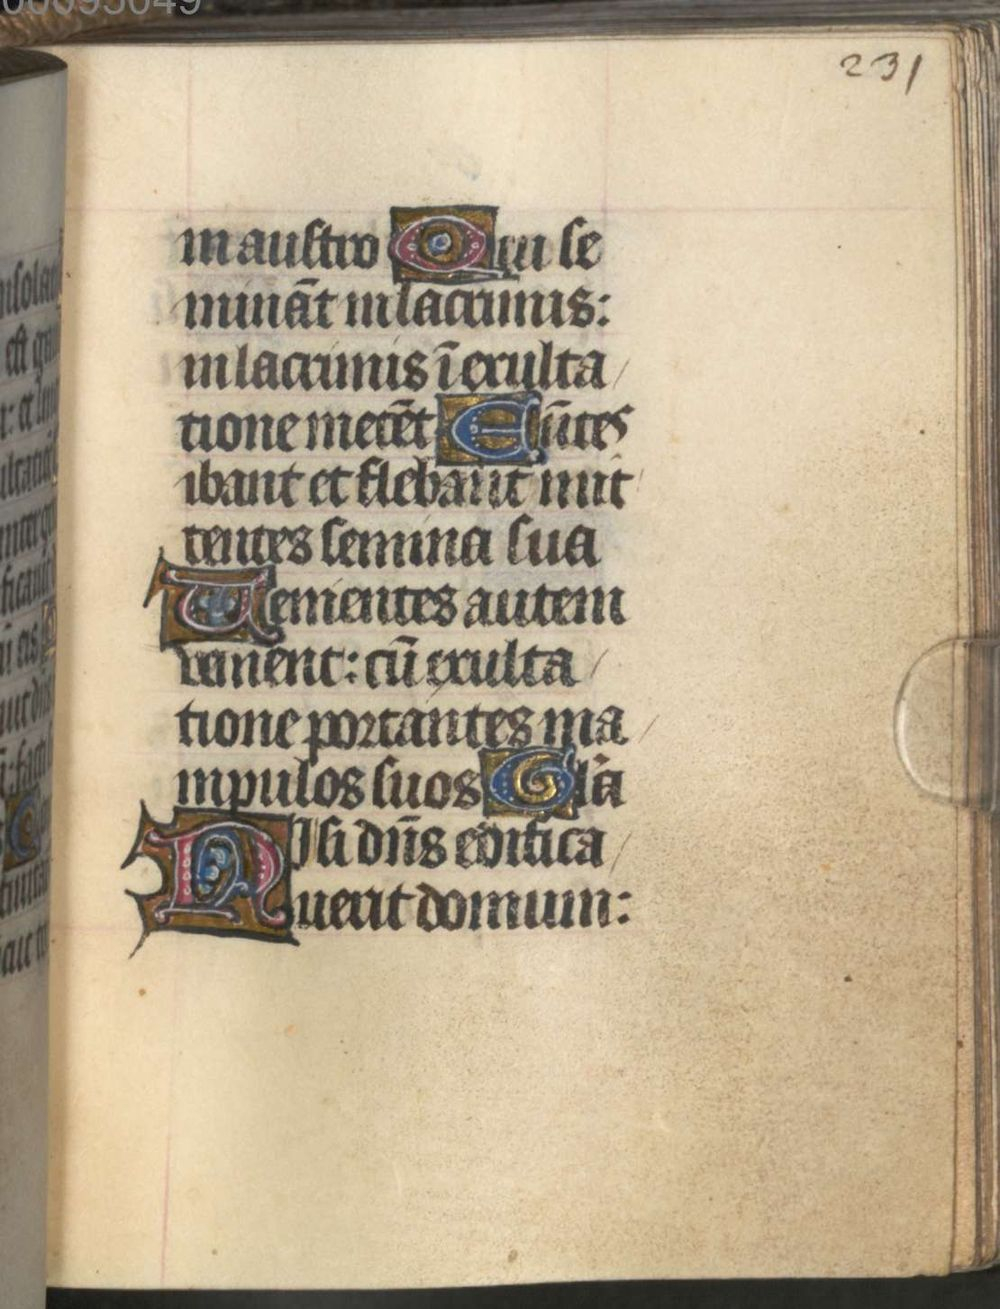 00095049
231
in austro Qui se
mināt in lacrimis:
in lacrimis ī exulta
tione metēt Eūtes
ibant et flebant mit
tentes semina sua
Uenientes autem
venient: cū exulta
tione portantes ma
nipulos suos Glā
NIsi dn̄s edifica
uerit domum: